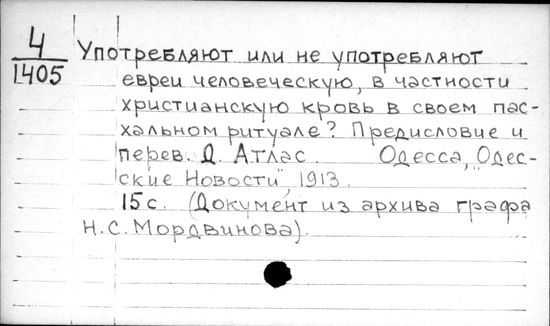 4
1405
Употребляют или не употребляют
евреи человеческую, в частности
христианскую кровь в своем пас-
хальном ритуале? Предисловие и
перев. Д. Атлас. Одесса, "Одес-
ские Новости", 1913.
15 с. (Документ из архива графа
Н.С. Мордвинова).